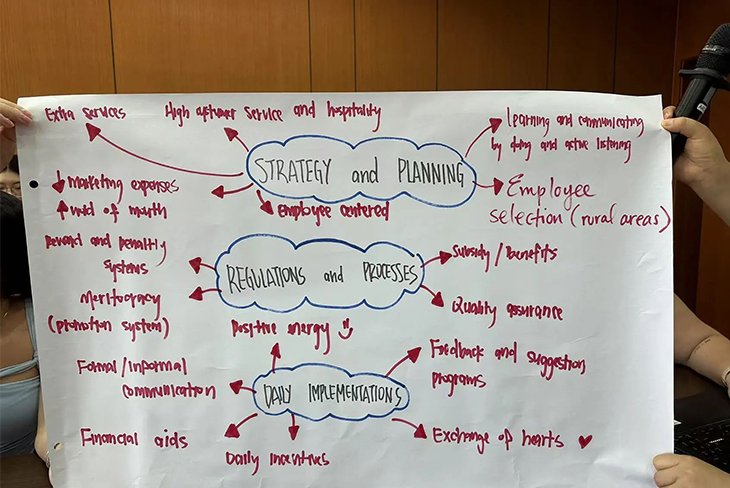 Extra services
High customer service and hospitality
learning and communicating
by doing and active listening
STRATEGY and PLANNING
↓ Marketing expenses
↑ word of mouth
Employee centered
Employee
selection (rural areas)
Reward and penalty
systems
Meritocracy
(promotion system)
REGULATIONS and PROCESSES
Subsidy / Benefits
Quality assurance
Positive energy
Formal / Informal
communication
DAILY IMPLEMENTATIONS
Feedback and suggestion
programs
Financial aids
Daily incentives
Exchange of hearts ♥